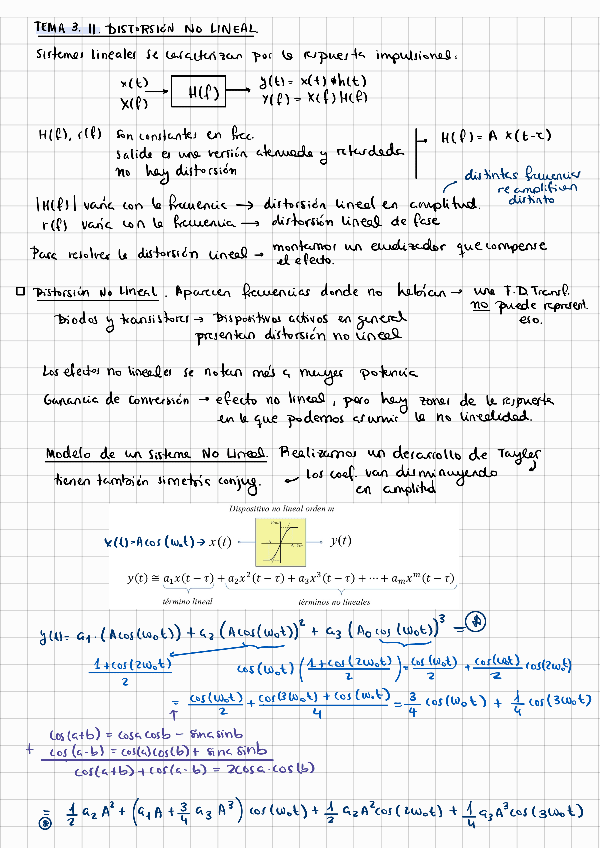 TEMA 3. II. DISTORSIÓN NO LINEAL
Sistemas lineales se caracterizan por la respuesta impulsional:
x(t) → H(f) → y(t) = x(t) * h(t)
X(f) Y(f) = X(f) H(f)
H(f), r(f) son constantes en frec. H(f) = A x(t-τ)
Salida es una versión atenuada y retardada
no hay distorsión
distintas frecuencias
se amplifican
distinto
|H(f)| varía con la frecuencia → distorsión lineal en amplitud.
r(f) varía con la frecuencia → distorsión lineal de fase
Para resolver la distorsión lineal → montamos un ecualizador que compense
el efecto.
□ Distorsión No Lineal. Aparecen frecuencias donde no habían → una F.D.Transf.
no puede represent.
eso.
Diodos y transistores → Dispositivos activos en general
presentan distorsión no lineal
Los efectos no lineales se notan más a mayor potencia
Ganancia de conversión → efecto no lineal, pero hay zonas de la respuesta
en la que podemos asumir la no linealidad.
Modelo de un sistema No Lineal. Realizamos un desarrollo de Tayler
tienen también simetría conjug. Los coef. van disminuyendo
en amplitud
Dispositivo no lineal orden m
x(t)=Acos(ω₀t) → x(t) → y(t)
y(t) ≅ a₁x(t − τ) + a₂x²(t − τ) + a₃x³(t − τ) + ⋯ + aₘxᵐ(t − τ)
término lineal términos no lineales
y(t) = a₁·(Acos(ω₀t)) + a₂(Acos(ω₀t))² + a₃(A₀cos(ω₀t))³ = (*)
(1+cos(2ω₀t))/2 cos(ω₀t)((1+cos(2ω₀t))/2) = cos(ω₀t)/2 + cos(ω₀t)/2 cos(2ω₀t)
= cos(ω₀t)/2 + (cos(3ω₀t) + cos(ω₀t))/4 = 3/4 cos(ω₀t) + 1/4 cos(3ω₀t)
cos(a+b) = cosa cosb − sina sinb
+ cos(a-b) = cos(a)cos(b) + sina sinb
cos(a+b) + cos(a-b) = 2cosa·cos(b)
=(*) 1/2 a₂A² + (a₁A + 3/4 a₃A³) cos(ω₀t) + 1/2 a₂A²cos(2ω₀t) + 1/4 a₃A³cos(3ω₀t)